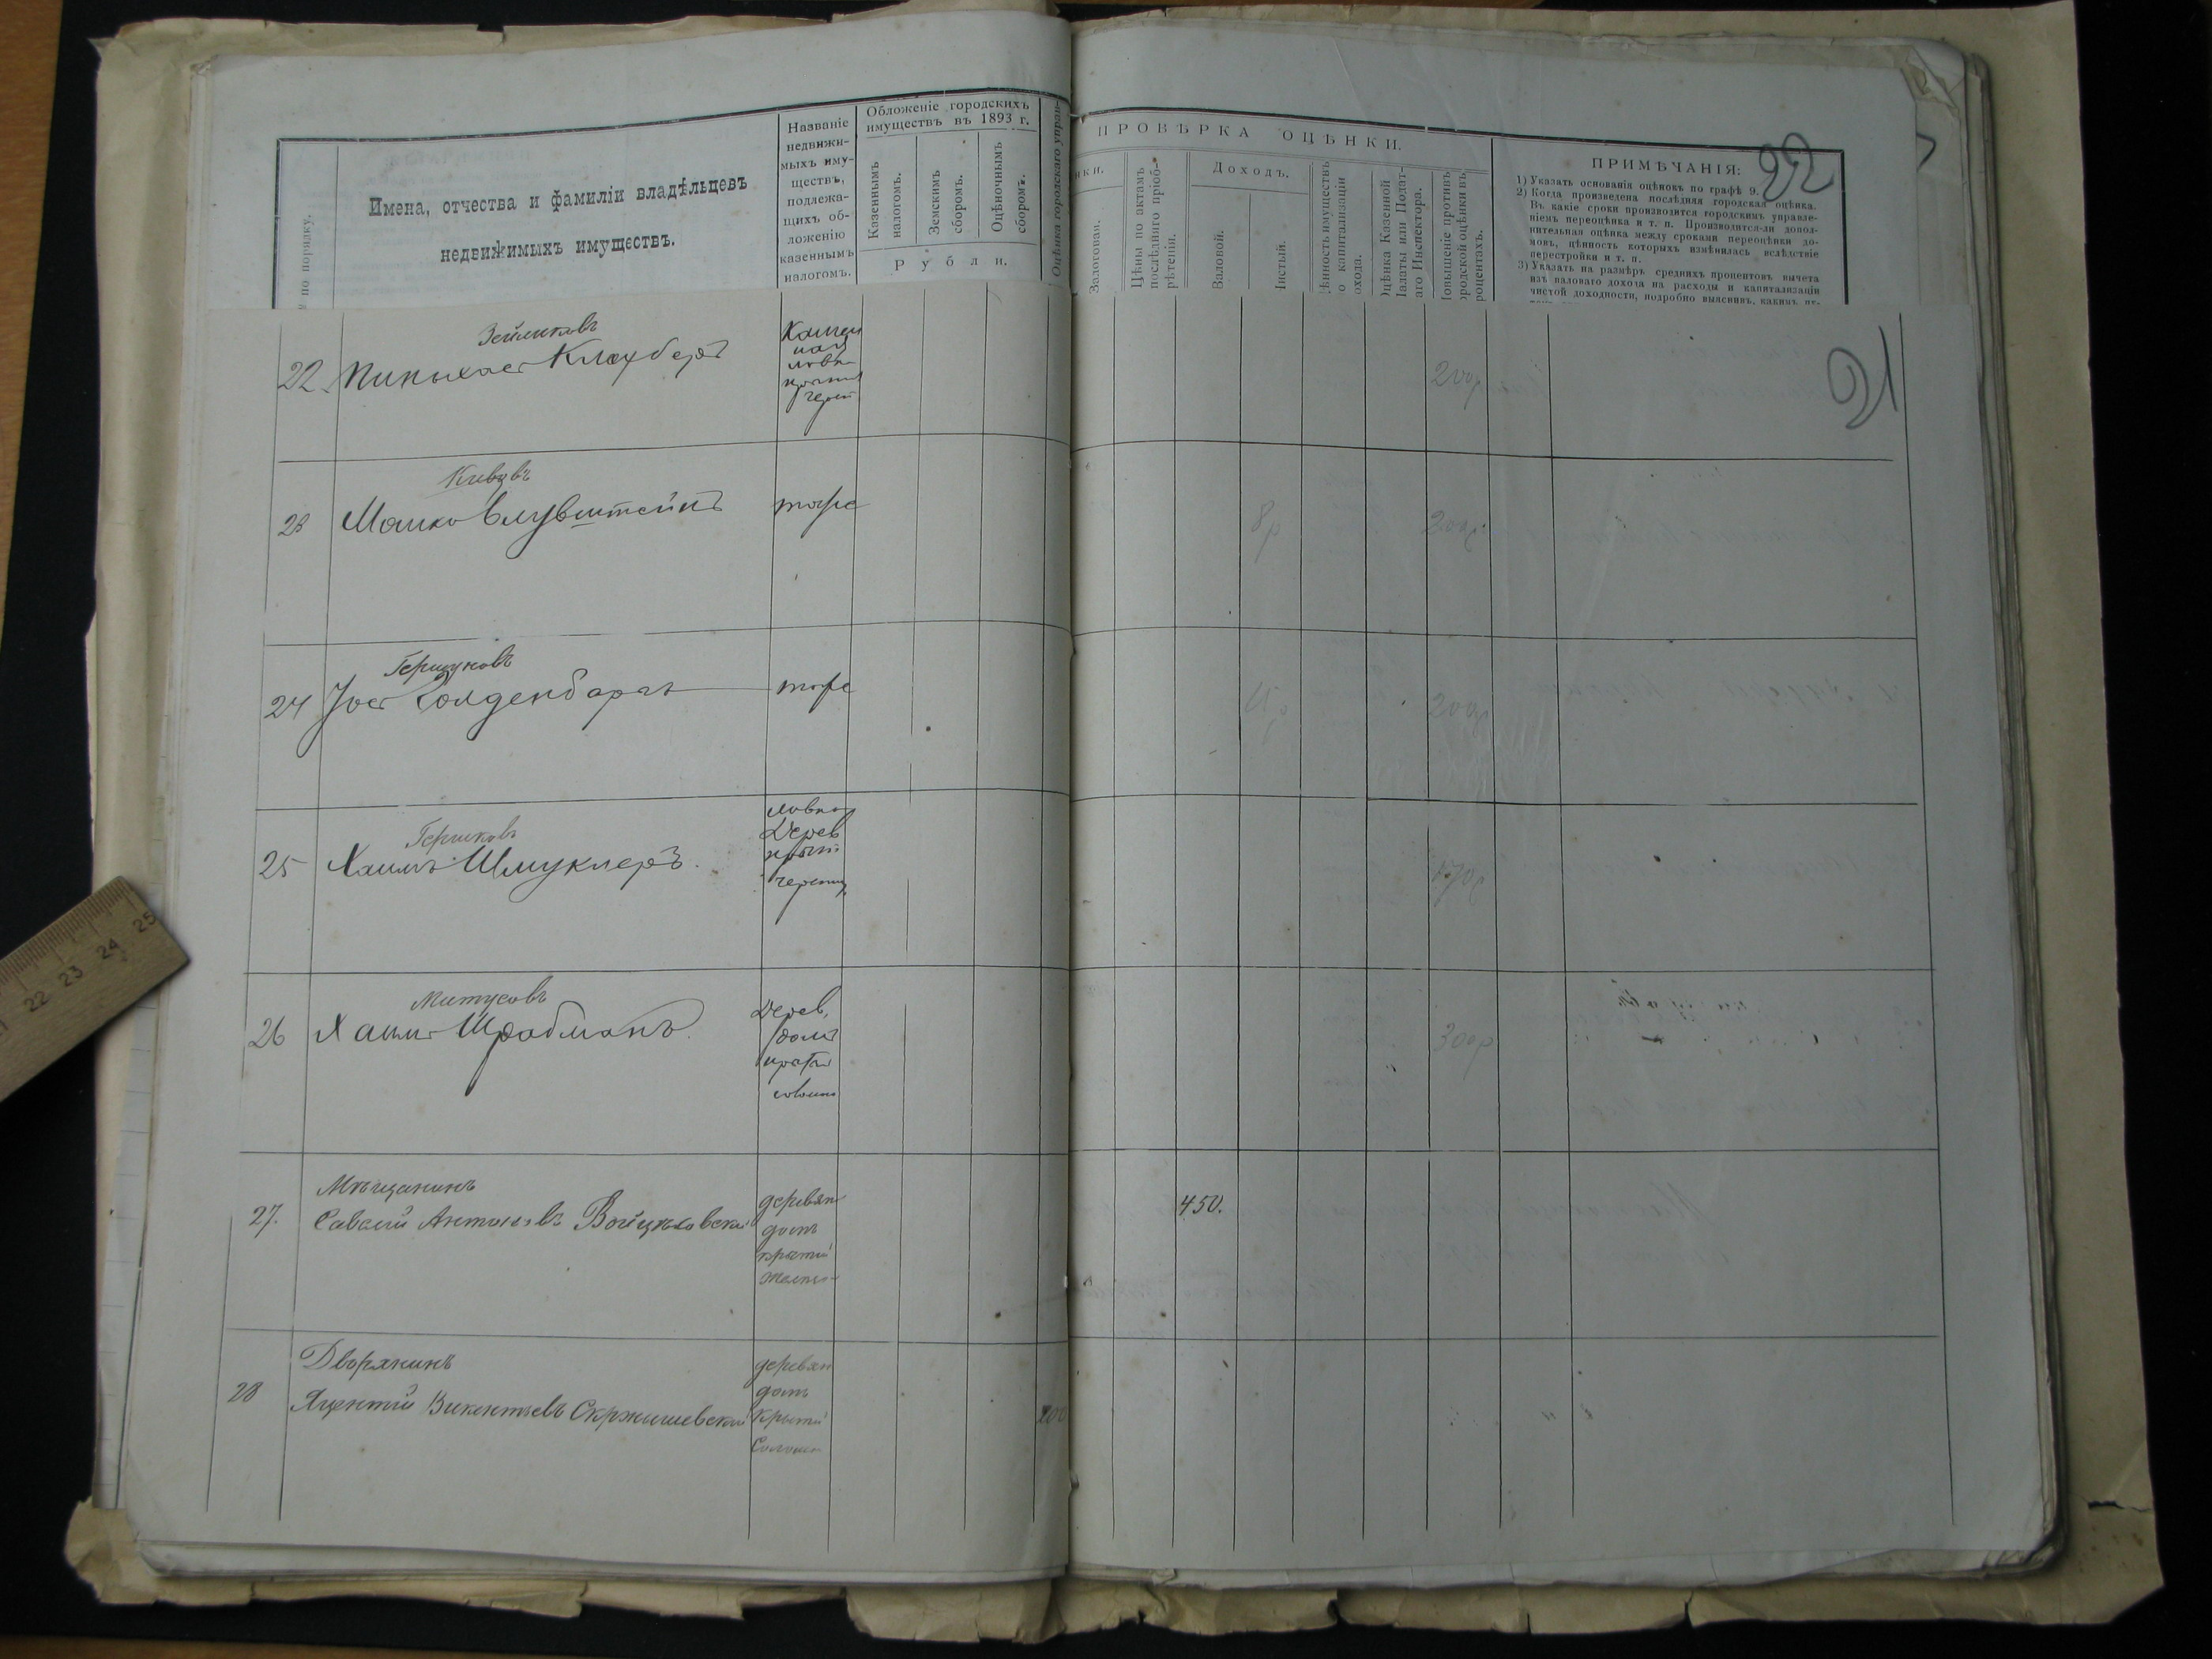 № по порядку.
Имена, отчества и фамиліи владѣльцевъ
недвижимыхъ имуществъ.
Названіе
недвижи-
мыхъ иму-
ществъ,
подлежа-
щихъ об-
ложенію
казеннымъ
налогомъ.
Обложеніе городскихъ
имуществъ въ 1893 г.
Казеннымъ
налогомъ.
Земскимъ
сборомъ.
Оцѣночнымъ
сборомъ.
Рубли.
Оцѣнка городскаго управ-
ПРОВѢРКА ОЦѢНКИ.
нки.
Залоговая.
Цѣны по актамъ
послѣдняго пріоб-
рѣтенія.
Доходъ.
Валовой.
Чистый.
Цѣнность имуществъ
по капитализаціи
дохода.
Оцѣнка Казенной
Палаты или Подат-
наго Инспектора.
Повышеніе противъ
городской оцѣнки въ
процентахъ.
ПРИМѢЧАНІЯ:
22
1) Указать основанія оцѣнокъ по графѣ 9.
2) Когда произведена послѣдняя городская оцѣнка.
Въ какіе сроки производится городскимъ управле-
ніемъ переоцѣнка и т. п. Производится-ли допол-
нительная оцѣнка между сроками переоцѣнки до-
мовъ, цѣнность которыхъ измѣнилась вслѣдствіе
перестройки и т. п.
3) Указать на размѣръ среднихъ процентовъ вычета
изъ валоваго дохода на расходы и капитализаціи
чистой доходности, подробно выяснивъ, какимъ пу-
21
Зейликовъ
22 Пинхас
200р
23 Мошко
тоже
8р 200р
Гершковъ
24 Іос Голденбаргъ тоже
200р
лавка
Гершковъ Дерев
25 Хаимъ Шмуклеръ. крыт
черепиц
170р
Митусовъ Дерев.
26 Хаим Шрабманъ. домъ
300р
Мѣщанинъ деревян
27. Савелій Антоновъ Войцѣховскій домъ
450.
крытый
Дворянинъ деревян
28 домъ
Яцентій Викентьевъ Скржишевскій крытый 200
Соломен
22 23 24 25